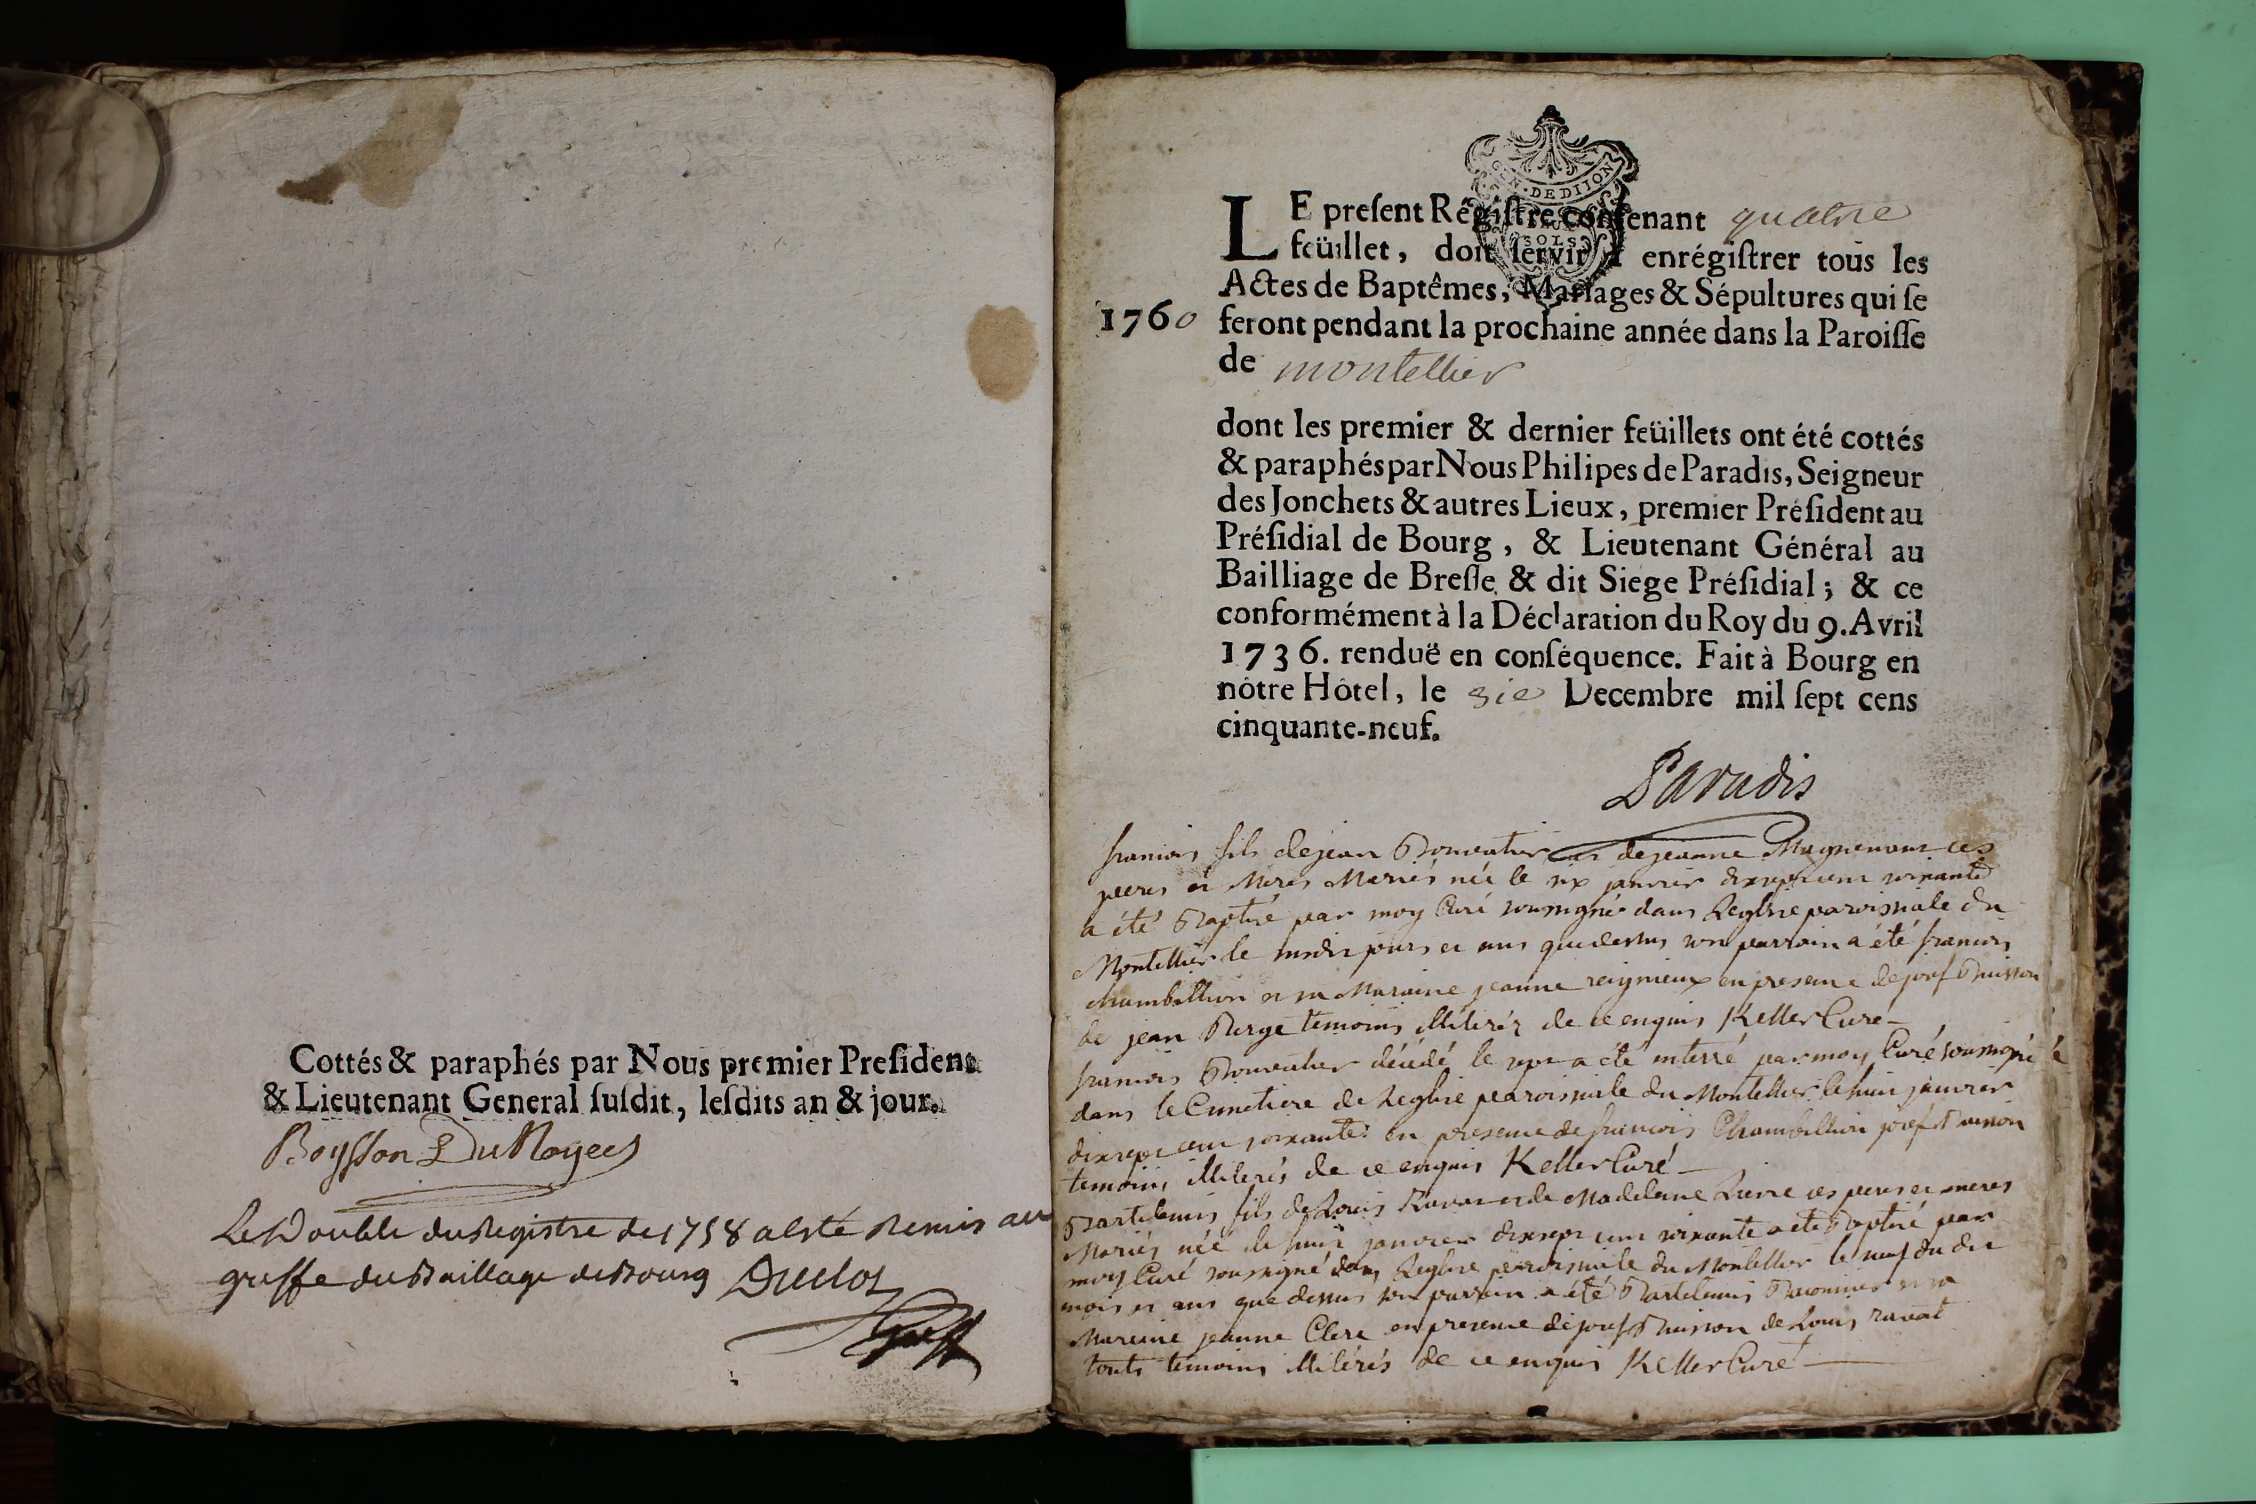 Cottés & paraphés par Nous premier Preſident
& Lieutenant General ſuſdit, leſdits an & jour.
Boysson DuNoyer
Le Double du Registre de 1758 a esté Remis au
greffe du Baillage de Bourg Duclos
Greff
GEN · DE DIJON
SOLS
LE preſent Régiſtre contenant quatre
feüillet, doit ſervir à enrégiſtrer tous les
Actes de Baptêmes, Mariages & Sépultures qui ſe
1760 feront pendant la prochaine année dans la Paroiſſe
de montellier
dont les premier & dernier feüillets ont été cottés
& paraphés par Nous Philipes de Paradis, Seigneur
des Jonchets & autres Lieux, premier Préſident au
Préſidial de Bourg, & Lieutenant Général au
Bailliage de Breſſe & dit Siege Préſidial; & ce
conformément à la Déclaration du Roy du 9. Avril
1736. renduë en conſéquence. Fait à Bourg en
nôtre Hôtel, le Decembre mil ſept cens
cinquante-neuf.
Paradis
francois fils de jean et de jeanne ces
peres et Meres Mariés née le six janvier dixsept cent soixante
a été Baptisé par moy Curé soussigné dans Leglise paroissiale du
Montellier le jours et ans que dessus son parrain a été francois
Chambillion et sa Maraine jeanne reignieux en presence de josef Buisson
de jean Berge temoins illiterés de ce enquis Keller Curé
francois décédé le sept a été enterré par moy Curé soussigné
dans le Cimetiere de Leglise paroissiale du Montellier le huit janvier
dixsept cent soixante en presence de francois Chambillion josef Buisson
temoins illiterés de ce enquis Keller Curé
Bartelemis fils de Louis Ravat et de Madeleine ces peres et meres
Mariés née le huit janvier dixsept cent soixante a été Baptisé par
moy Curé soussigné dans Leglise paroissiale du Montellier le neuf du dit
mois et ans que dessus son parrain a été Bartelemis et sa
Maraine jeanne Clerc en presence de josef Buisson de Louis ravat
touts temoins illiterés de ce enquis Keller Curé